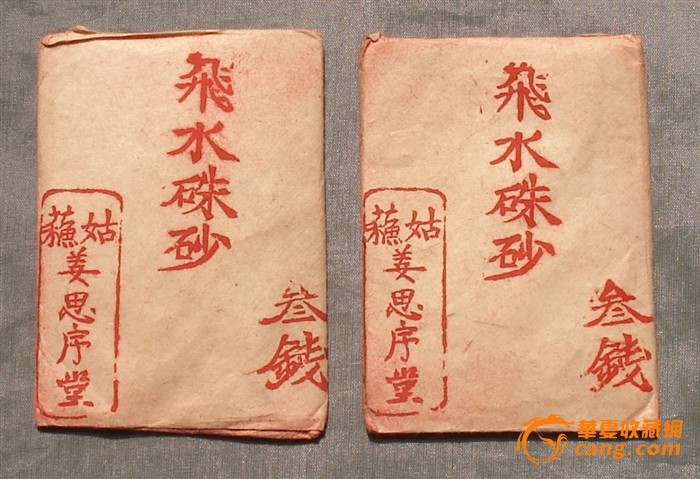 飛水硃砂
叁錢
姑蘓
姜思序堂
飛水硃砂
叁錢
姑蘓
姜思序堂
華夏收藏網
cang.com